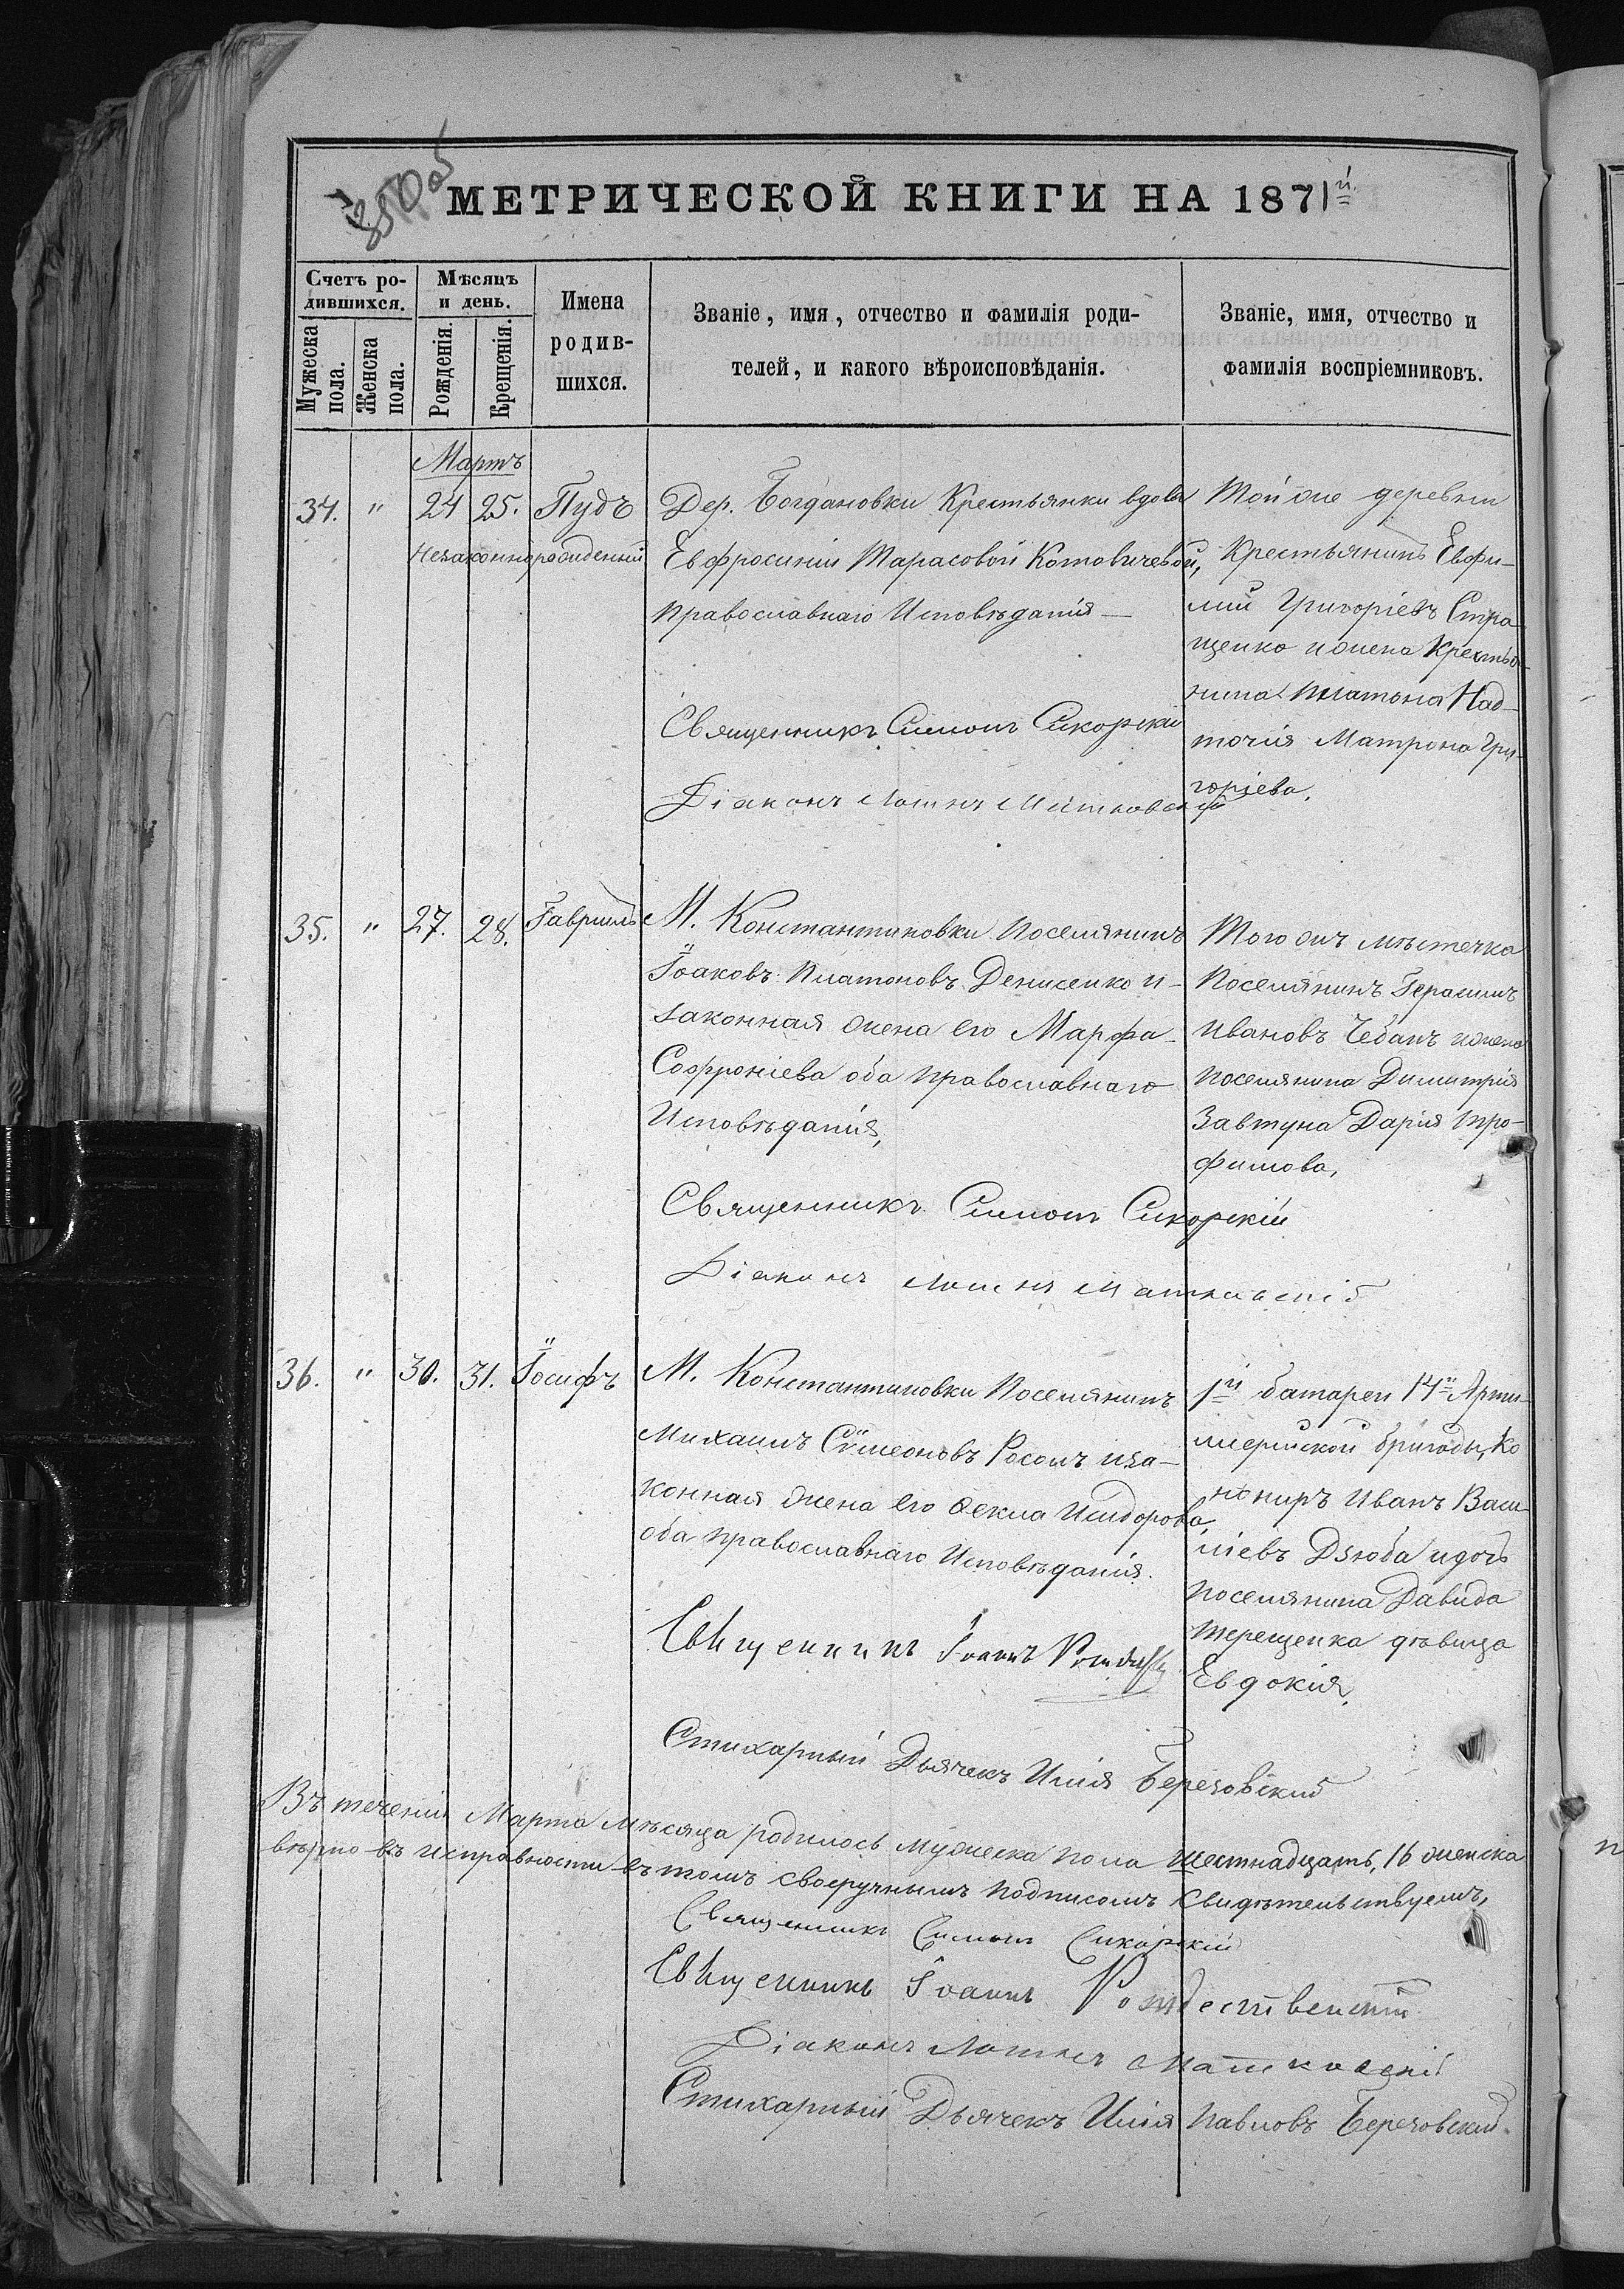 350об
МЕТРИЧЕСКОЙ КНИГИ НА 1871й
Счетъ ро-
дившихся.
Мужеска
пола.
Женска
пола.
Мѣсяцъ
и день.
Рожденія.
Крещенія.
Имена
родив-
шихся.
Званіе, имя, отчество и фамилія роди-
телей, и какого вѣроисповѣданія.
Званіе, имя, отчество и
фамилія воспріемниковъ.
Мартъ
34. " 24 25. Пудъ
Незаконнорожденный
Дер. Богдановки Крестьянки вдовы
Евфросиніи Тарасовой Котовичевой,
Православнаго Исповѣданія —
Священникъ Симонъ Сикорскій
Діаконъ Логинъ
Той же деревни
Крестьянинъ Евфи-
мій Григоріевъ Стра-
щенко и жена Крестья-
нина Платона Над-
точія Матрона Гри-
горіева.
35. " 27. 28. Гавріилъ
М. Константиновки Поселянинъ
Іоаковъ Платоновъ Денисенко и
законная жена его Марфа
Софроніева оба Православнаго
Исповѣданія,
Священникъ Симонъ Сикорскій
Діаконъ Логинъ Матковскій
Того жъ мѣстечка
Поселянинъ Герасимъ
Ивановъ Чебанъ и жена
Поселянина Димитрія
Завтуна Дарія Тро-
фимова,
36. " 30. 31. Іосифъ
М. Константиновки Поселянинъ
Михаилъ Симеоновъ Росолъ и за-
конная жена его Ѳекла Исидорова,
оба Православнаго Исповѣданія.
Священникъ Іоаннъ
Стихарный Дьячекъ Илія Березовскій
1й батареи 14й Арти-
лерійской бригады, Ко
нониръ Иванъ Васи-
ліевъ Дзюба и дочь
Поселянина Давида
Терещенка дѣвица
Евдокія.
Въ теченіи Марта мѣсяца родилось мужеска пола шестнадцать, 16 женска
вѣрно въ исправности въ томъ своеручнымъ подписомъ свидѣтельствуемъ,
Священникъ Симонъ Сикорскій
Священникъ Іоаннъ Рождественскій
Діаконъ Логинъ Матковскій
Стихарный Дьячекъ Илія Павловъ Березовскій.